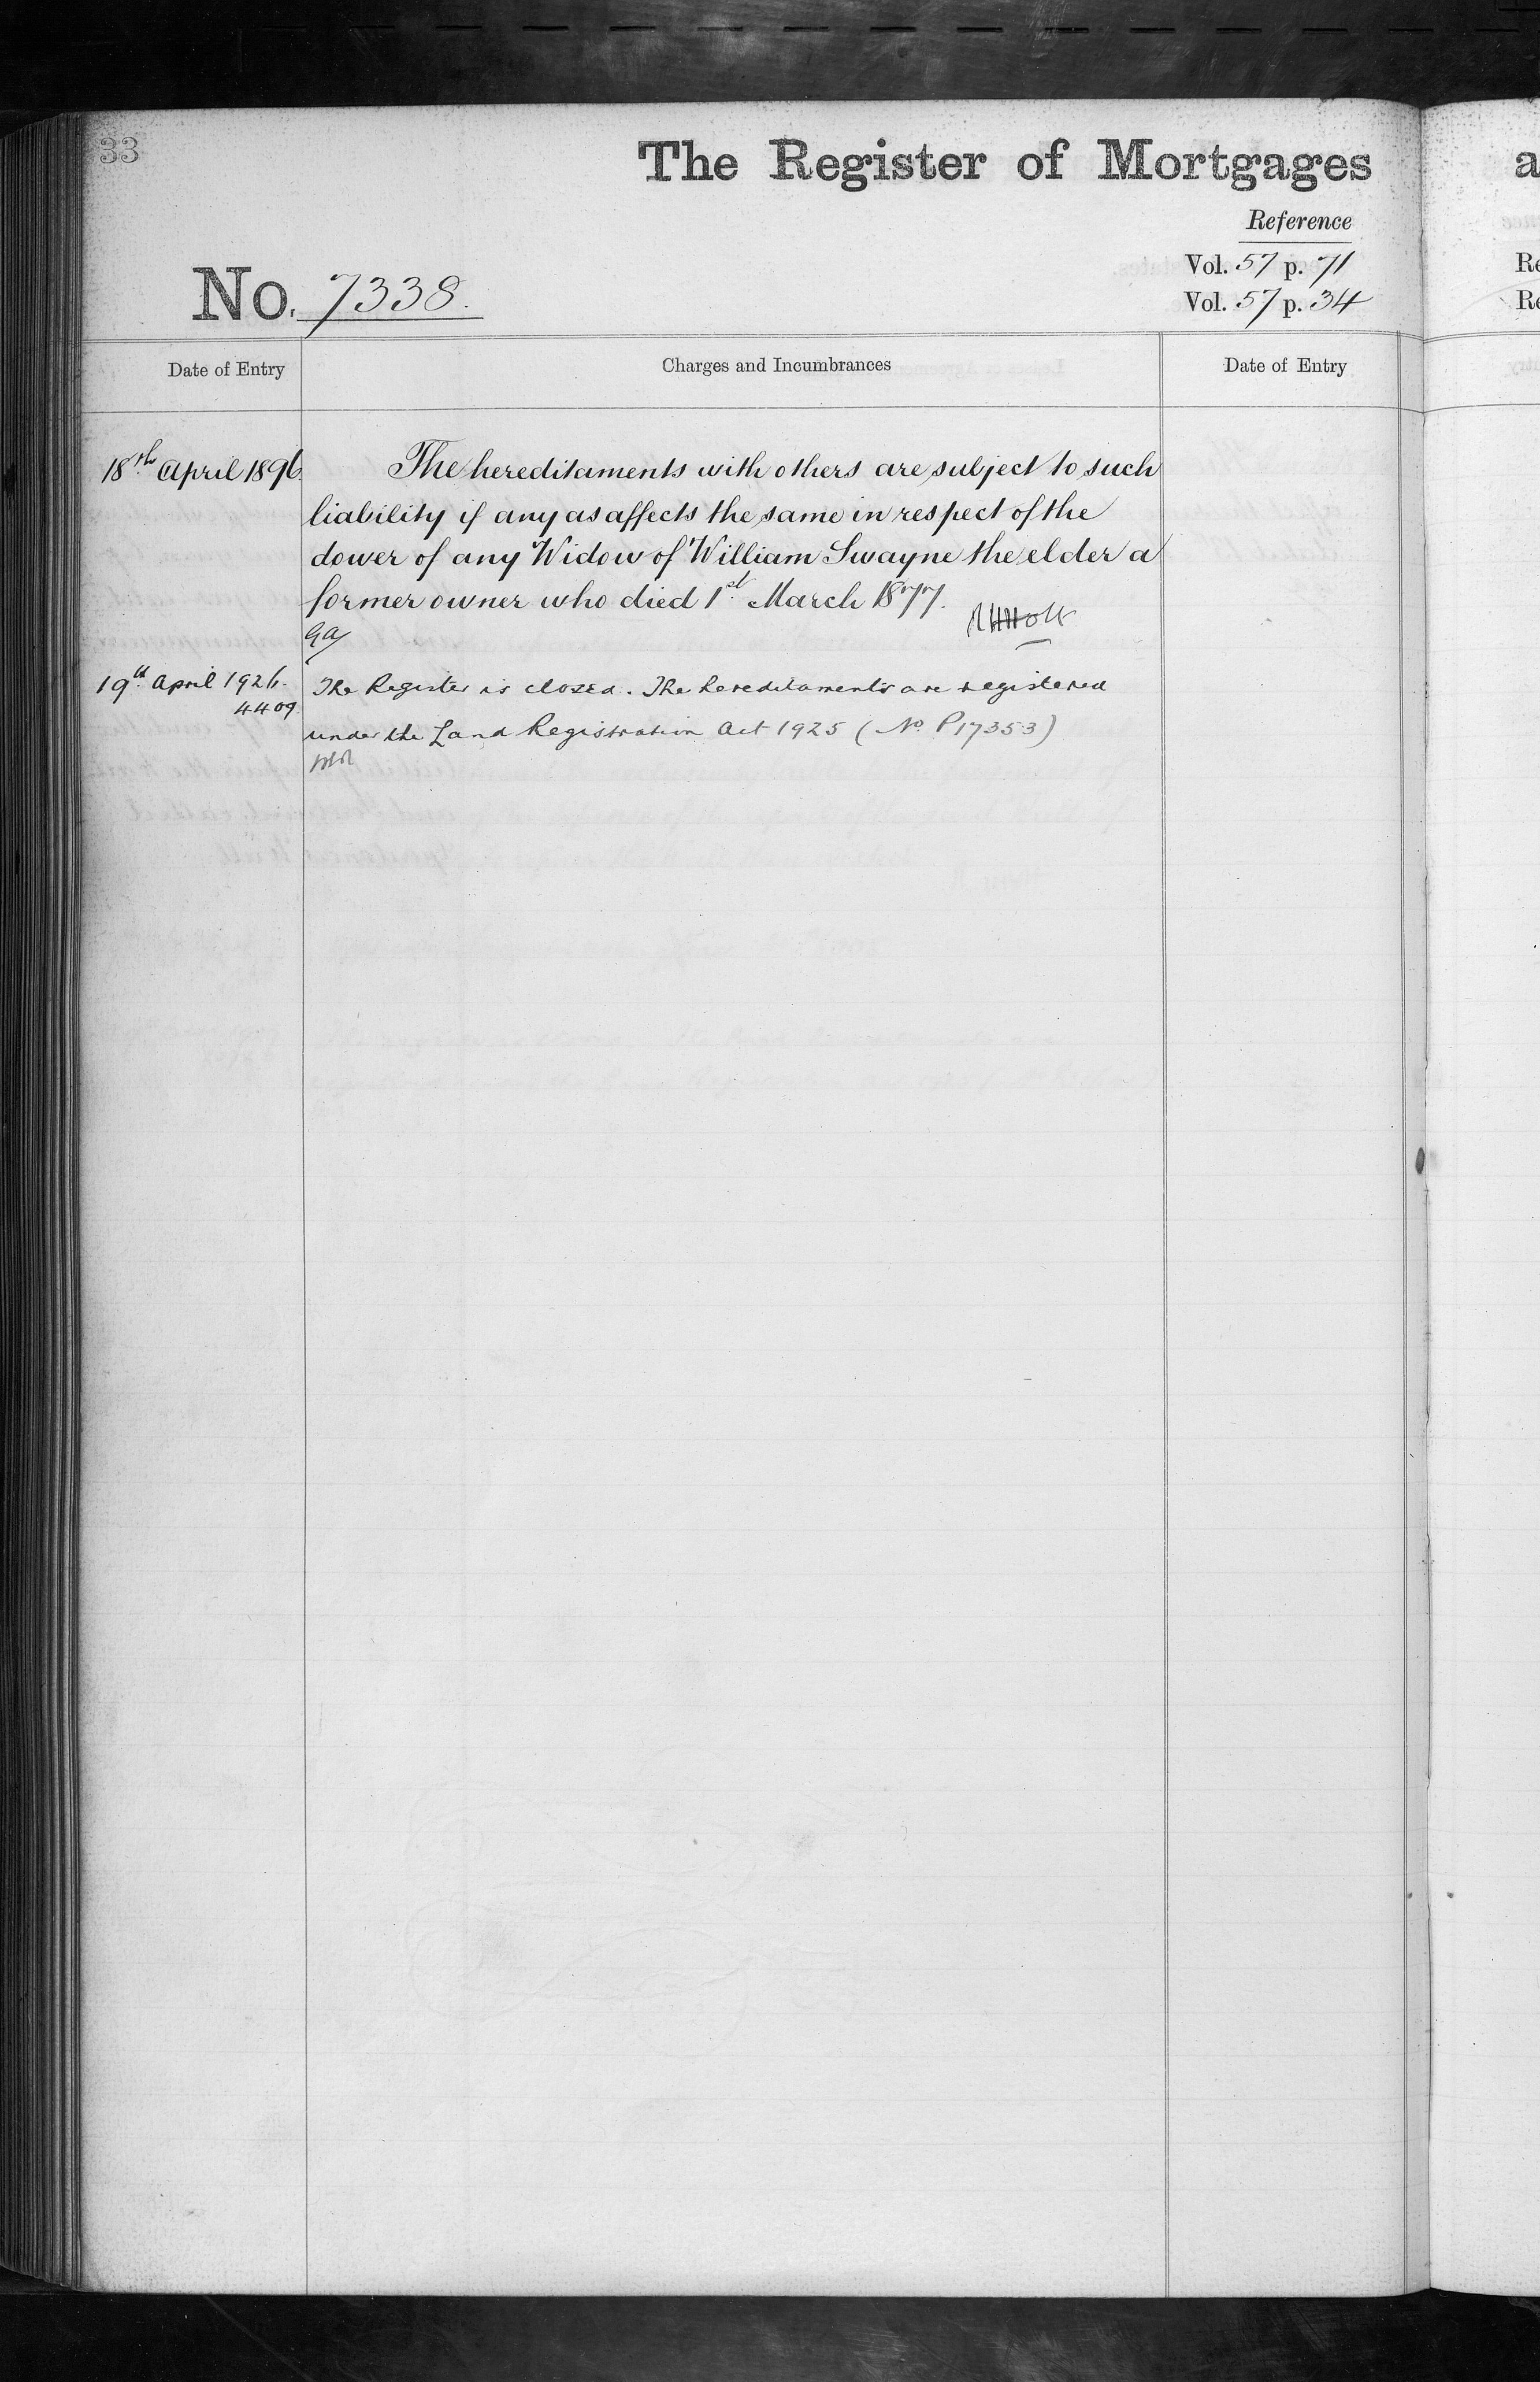 33
The Register of Mortgages
a
Reference
Vol. 57 p. 71
Re
Vol. 57 p. 34
Re
No. 7338.
Date of Entry
Charges and Incumbrances
Date of Entry
18th April 1896
The hereditaments with others are subject to such
liability if any as affects the same in respect of the
dower of any Widow of William Swayne the elder a
former owner who died 1st March 1877.
19th April 1926.
The Register is closed. The hereditaments are registered
4409
under the Land Registration Act 1925 (No. P17353)